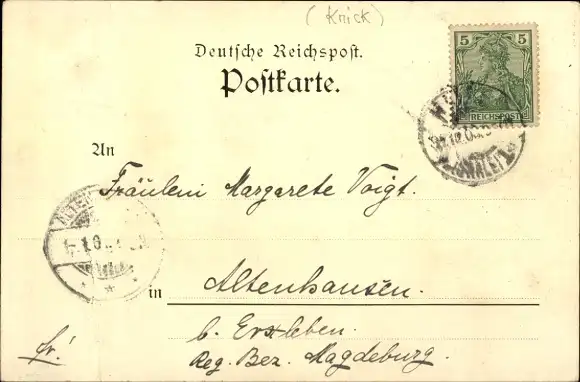 (Knick)
Deutsche Reichspost.
Postkarte.
5 5
REICHSPOST
An
Fräulein Margarete Voigt.
in Altenhausen.
b. Erxleben.
Reg. Bez. Magdeburg.
fr!